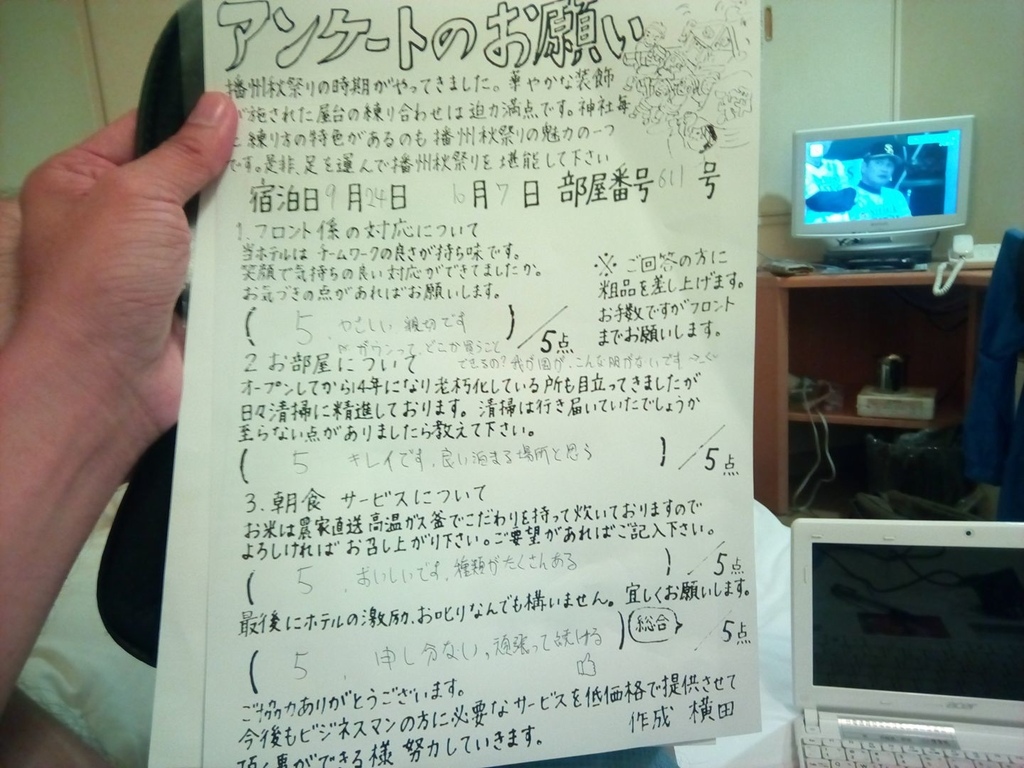 アンケートのお願い
播州秋祭りの時期がやってきました。華やかな装飾
が施された屋台の練り合わせは迫力満点です。神社毎
に練り方の特色があるのも播州秋祭りの魅力の一つ
です。是非、足を運んで播州秋祭りを堪能して下さい
宿泊日9月24日 10月7日 部屋番号611号
1.フロント係の対応について
当ホテルは チームワークの良さが持ち味です。
笑顔で気持ちの良い対応ができてましたか。
お気づきの点があればお願いします。
※ ご回答の方に
粗品を差し上げます。
お手数ですがフロント
までお願いします。
( 5 やさしい、親切です ) /5点
どこか買うこと
できるの?我が国が、こんな
2 お部屋について
オープンしてから14年になり老朽化している所も目立ってきましたが
日々清掃に精進しております。清掃は行き届いていたでしょうか
至らない点がありましたら教えて下さい。
( 5 キレイです、良い泊まる場所と思う ) /5点
3.朝食 サービスについて
お米は農家直送 高温ガス釜でこだわりを持って炊いておりますので
よろしければ お召し上がり下さい。ご要望があればご記入下さい。
( 5 おいしいです、種類がたくさんある ) /5点
最後にホテルの激励、お叱りなんでも構いません。宜しくお願いします。
( 5 申し分ない。頑張って続ける ) 総合 /5点
ご協力ありがとうございます。
今後もビジネスマンの方に必要なサービスを低価格で提供させて
頂く事ができる様 努力していきます。
作成 横田
acer